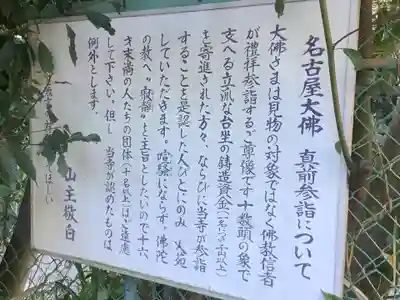 名古屋大佛 真前参詣について
大佛さまは見物の対象ではなく佛教信者
が禮拝参詣するご尊像です十数頭の象で
支へる立派な台座の鋳造資金(一名六十円以上)
を寄進された方々、ならびに当寺が参詣
することを是認した人びとにのみ
していただきます。喧騒にならず。佛陀
の教へ〝寂静〟を主旨としたいので十六
才未満の人たちの団体(十名以上)はご遠慮
して下さい。但し 当寺が認めたものは、
例外とします。
山主敬白